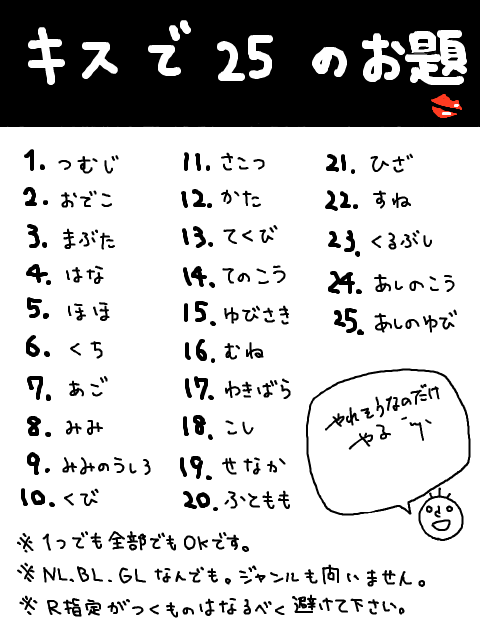 キスで25のお題
1. つむじ
2. おでこ
3. まぶた
4. はな
5. ほほ
6. くち
7. あご
8. みみ
9. みみのうしろ
10. くび
11. さこつ
12. かた
13. てくび
14. てのこう
15. ゆびさき
16. むね
17. わきばら
18. こし
19. せなか
20. ふともも
21. ひざ
22. すね
23. くるぶし
24. あしのこう
25. あしのゆび
やれそうなのだけ
やる
※ 1つでも全部でもOKです。
※ NL.BL.GLなんでも。ジャンルも問いません。
※ R指定がつくものはなるべく避けて下さい。